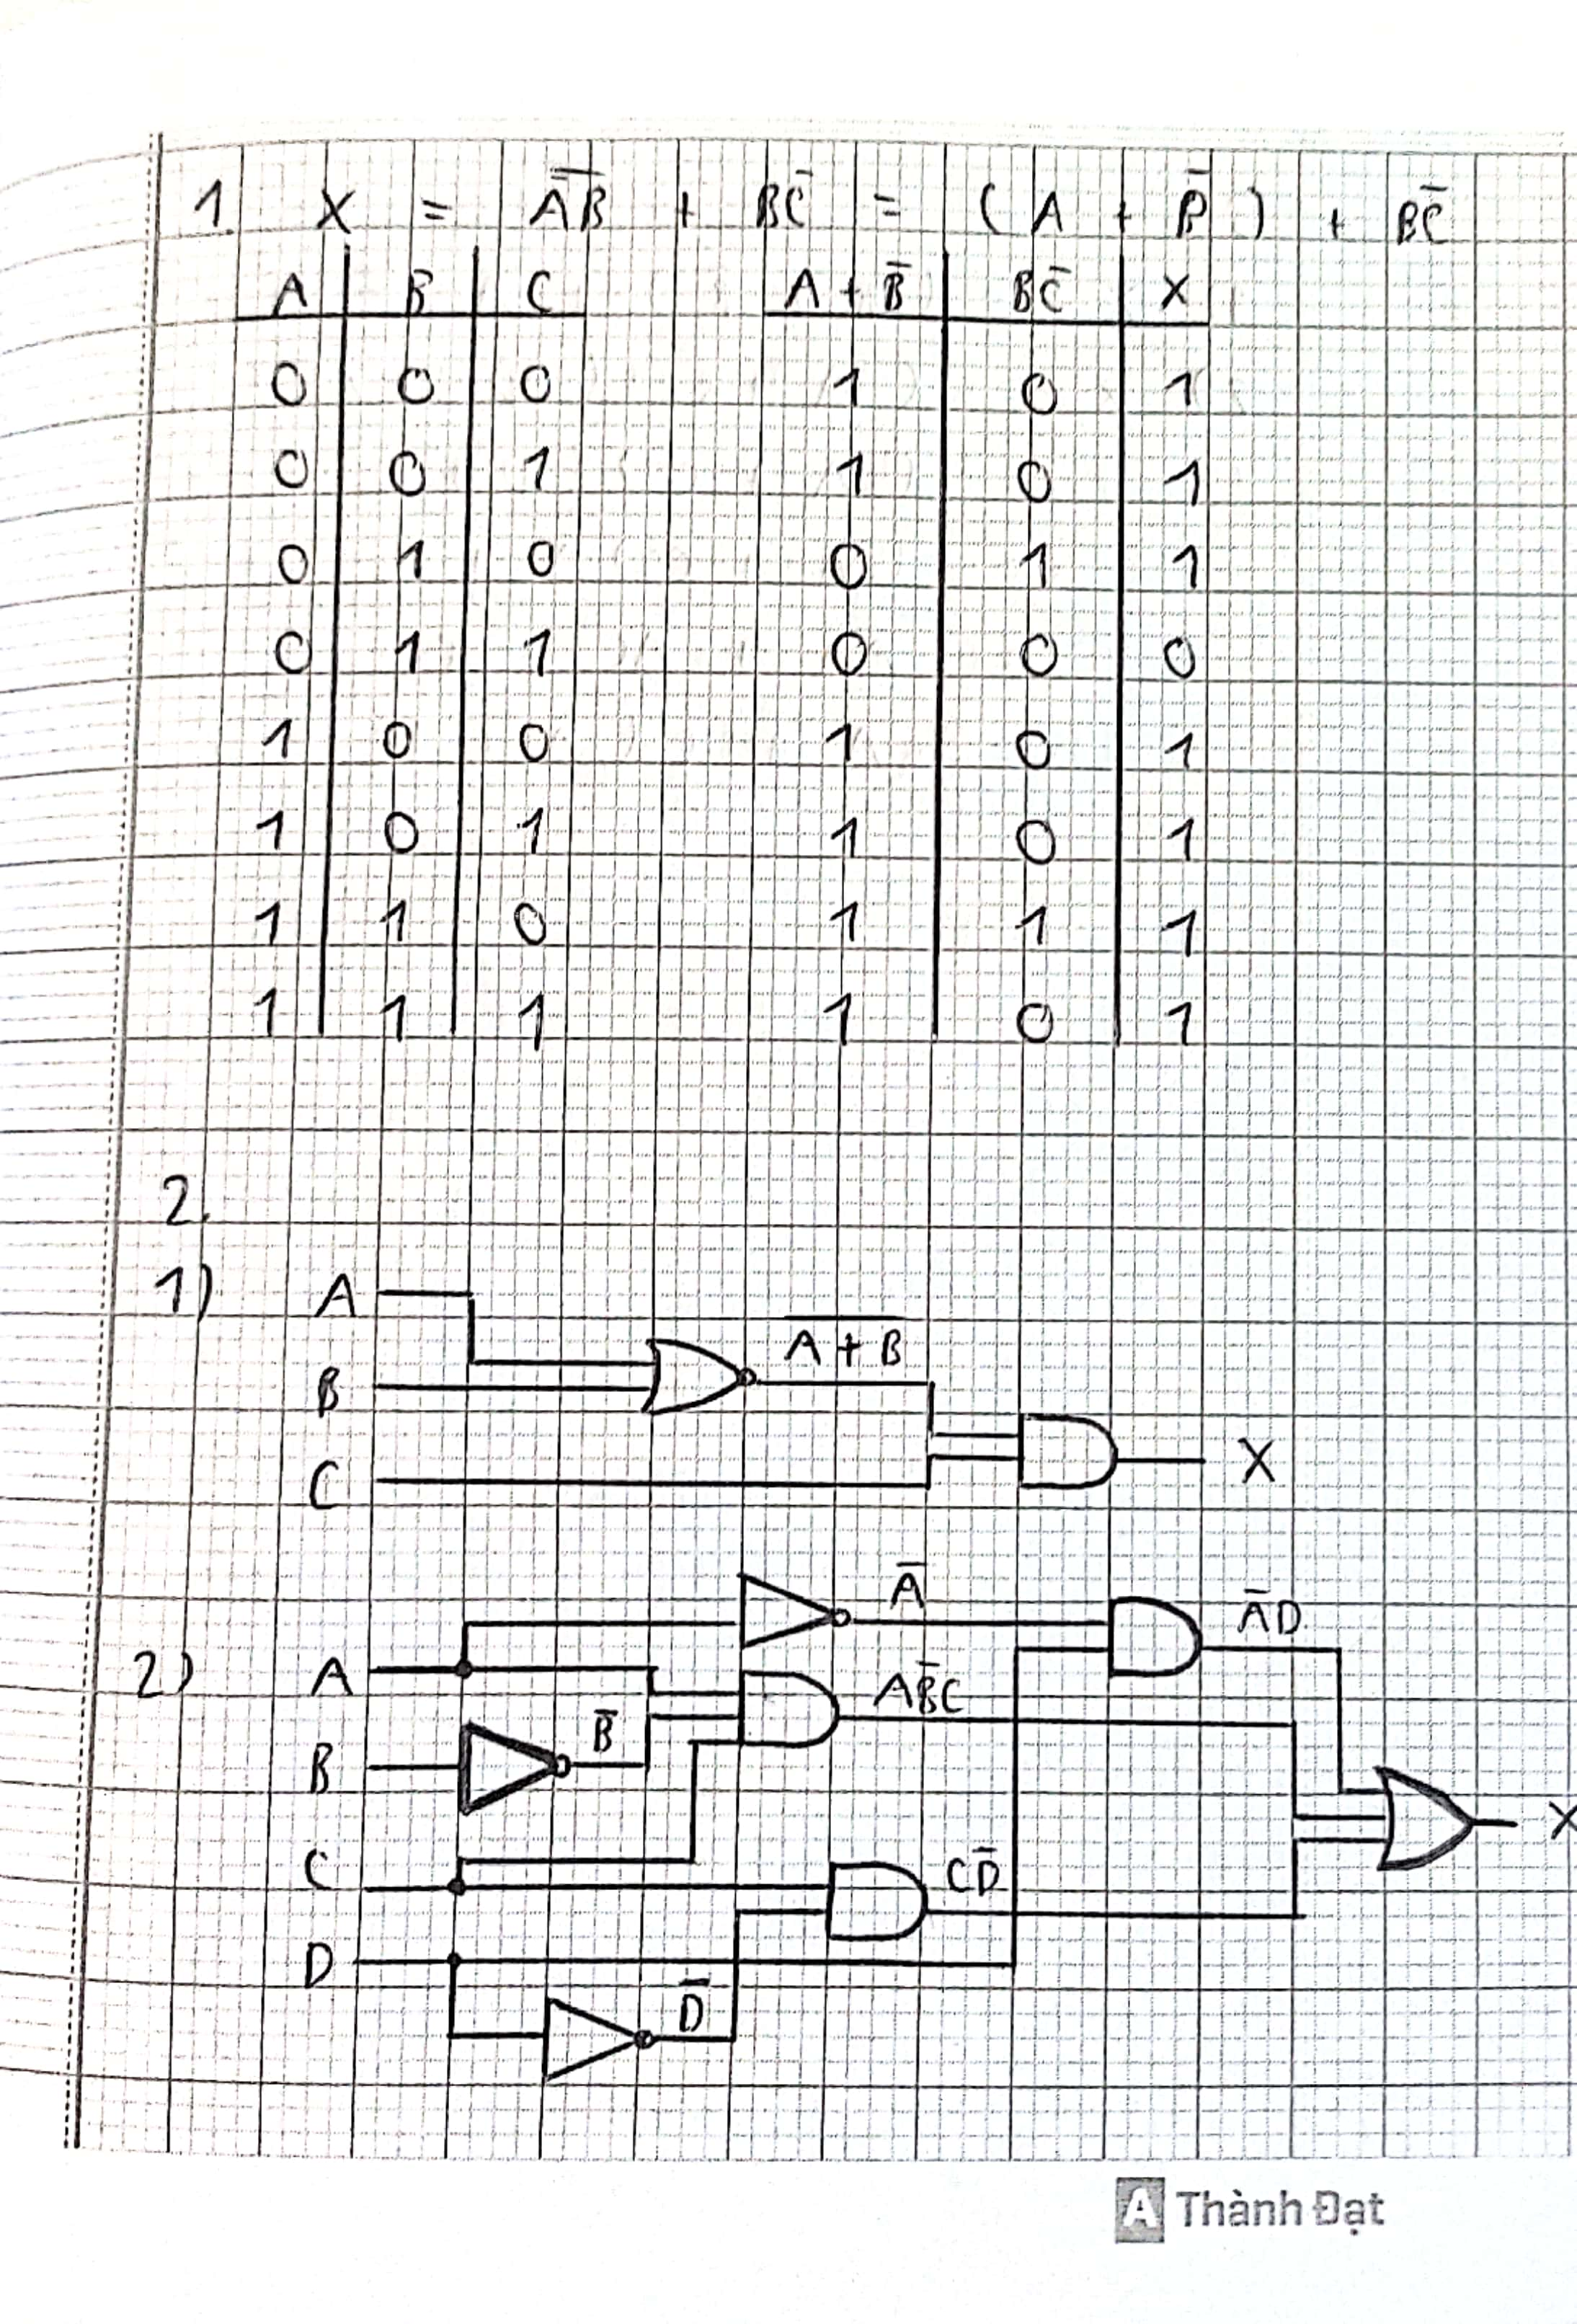 1. X = \overline{A̅B} + BC̅ = ( A + B̅ ) + BC̅
A B C A + B̅ BC̅ X
0 0 0 1 0 1
0 0 1 1 0 1
0 1 0 0 1 1
0 1 1 0 0 0
1 0 0 1 0 1
1 0 1 1 0 1
1 1 0 1 1 1
1 1 1 1 0 1
2.
1) A
\overline{A + B}
B
C X
A̅
A̅D
2) A
AB̅C
B B̅
X
C CD̅
D
D̅
A Thành Đạt